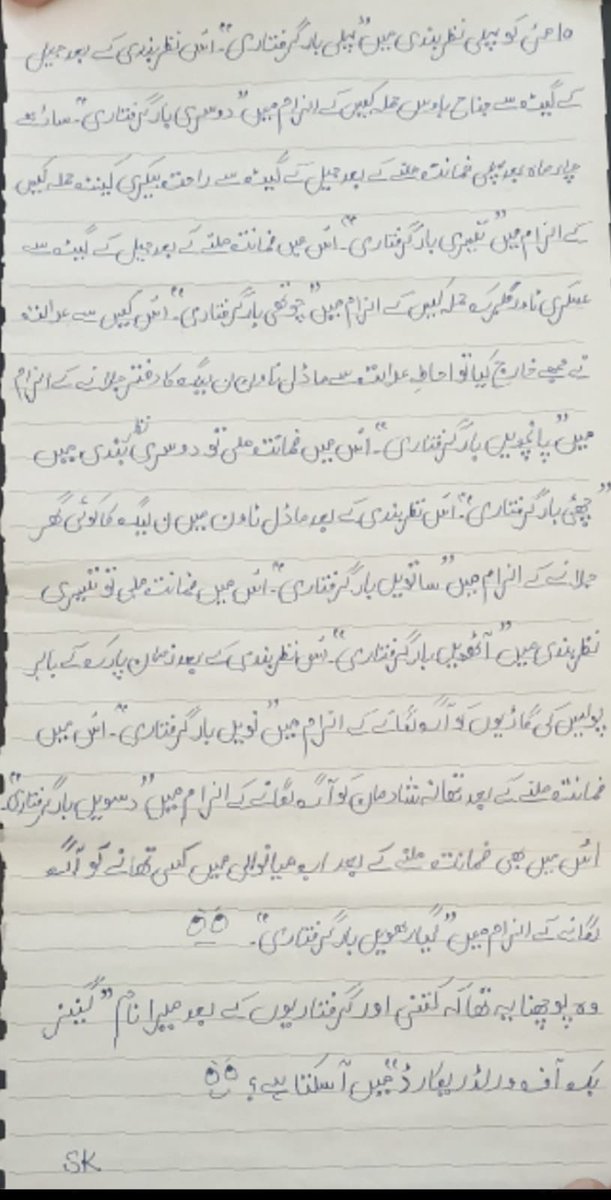 ۱۵ مئی کو پہلی نظر بندی میں "پہلی بار گرفتاری"۔ اس نظر بندی کے بعد جیل
کے گیٹ سے جناح ہاؤس حملہ کیس کے الزام میں "دوسری بار گرفتاری"۔ ساڑھے
چار ماہ بعد پہلی ضمانت ملنے کے بعد جیل کے گیٹ سے راحت بیکری کینٹ حملہ کیس
کے الزام میں "تیسری بار گرفتاری"۔ اس میں ضمانت ملنے کے بعد جیل کے گیٹ سے
عسکری ٹاور گلبرگ حملہ کیس کے الزام میں "چوتھی بار گرفتاری"۔ اس کیس سے عدالت
نے مجھے خارج کیا تو احاطہ عدالت سے ماڈل ٹاون ن لیگ کا دفتر جلانے کے الزام
میں "پانچویں بار گرفتاری"۔ اس میں ضمانت ملی تو دوسری نظر بندی میں
"چھٹی بار گرفتاری"۔ اس نظر بندی کے بعد ماڈل ٹاون میں ن لیگ کا کوئی گھر
جلانے کے الزام میں "ساتویں بار گرفتاری"۔ اس میں ضمانت ملی تو تیسری
نظر بندی میں "آٹھویں بار گرفتاری"۔ اس نظر بندی کے بعد زمان پارک کے باہر
پولیس کی گاڑیوں کو آگ لگانے کے الزام میں "نویں بار گرفتاری"۔ اس میں
ضمانت ملنے کے بعد تھانہ شادمان کو آگ لگانے کے الزام میں "دسویں بار گرفتاری"۔
اس میں بھی ضمانت ملنے کے بعد اب میانوالی میں کسی تھانے کو آگ
لگانے کے الزام میں "گیارھویں بار گرفتاری"۔
وہ پوچھنا یہ تھا کہ کتنی اور گرفتاریوں کے بعد میرا نام "گینیز
بک آف ورلڈ ریکارڈ" میں آ سکتا ہے؟
SK